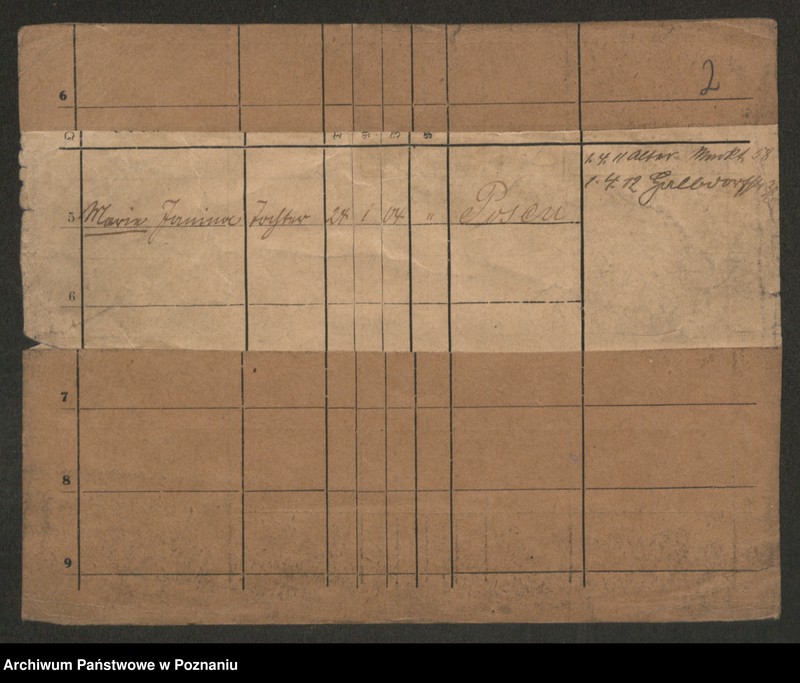 2
6
1. 4. 11 Alter Markt 58
1. 4. 12 Halbdorfstr
5 Marie Janina Tochter 24 1 04 " Posen
6
7
8
9
Archiwum Państwowe w Poznaniu